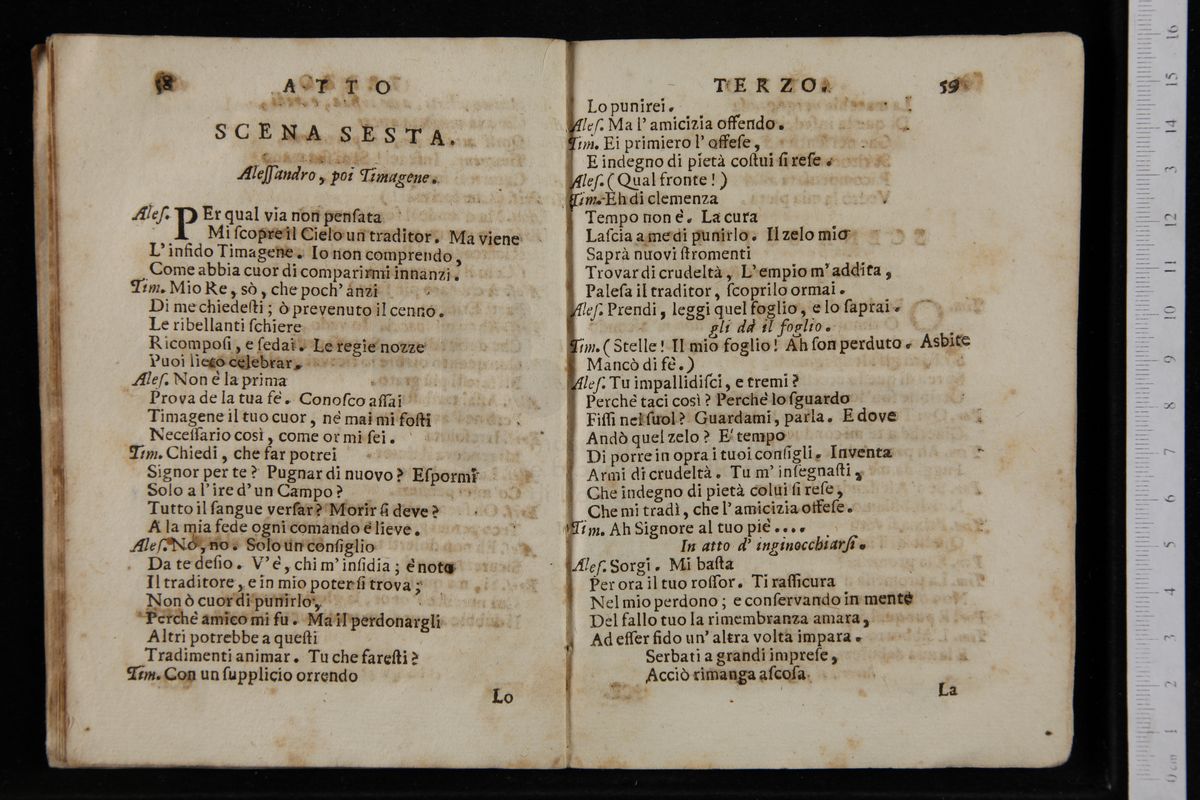 58 ATTO
SCENA SESTA.
Aleſſandro, poi Timagene.
Aleſ. PEr qual via non penſata
Mi ſcopre il Cielo un traditor. Ma viene
L'infido Timagene. Io non comprendo,
Come abbia cuor di comparirmi innanzi.
Tim. Mio Re, sò, che poch'anzi
Di me chiedeſti; ò prevenuto il cenno.
Le ribellanti ſchiere
Ricompoſi, e ſedai. Le regie nozze
Puoi lieto celebrar.
Aleſ. Non è la prima
Prova de la tua fé. Conoſco aſſai
Timagene il tuo cuor, né mai mi foſti
Neceſſario così, come or mi ſei.
Tim. Chiedi, che far potrei
Signor per te? Pugnar di nuovo? Eſpormi
Solo a l'ire d'un Campo?
Tutto il ſangue verſar? Morir ſi deve?
A la mia fede ogni comando é lieve.
Aleſ. No, no. Solo un conſiglio
Da te deſio. V'è, chi m'inſidia; é noto
Il traditore, e in mio poter ſi trova;
Non ò cuor di punirlo,
Perché amico mi fu. Ma il perdonargli
Altri potrebbe a queſti
Tradimenti animar. Tu che fareſti?
Tim. Con un ſupplicio orrendo
Lo
TERZO. 59
Lo punirei.
Aleſ. Ma l'amicizia offendo.
Tim. Ei primiero l'offeſe,
E indegno di pietà coſtui ſi reſe.
Aleſ. (Qual fronte!)
Tim. Eh di clemenza
Tempo non è. La cura
Laſcia a me di punirlo. Il zelo mio
Saprà nuovi ſtromenti
Trovar di crudeltà. L'empio m'addita,
Paleſa il traditor, ſcoprilo ormai.
Aleſ. Prendi, leggi quel foglio, e lo ſaprai.
gli dà il foglio.
Tim. (Stelle! Il mio foglio! Ah ſon perduto. Asbite
Mancò di fè.)
Aleſ. Tu impallidiſci, e tremi?
Perchè taci così? Perchè lo ſguardo
Fiſſi nel ſuol? Guardami, parla. E dove
Andò quel zelo? E' tempo
Di porre in opra i tuoi conſigli. Inventa
Armi di crudeltà. Tu m'inſegnaſti,
Che indegno di pietà colui ſi reſe,
Che mi tradì, che l'amicizia offeſe.
Tim. Ah Signore al tuo piè....
In atto d'inginocchiarſi.
Aleſ. Sorgi. Mi baſta
Per ora il tuo roſſor. Ti raſſicura
Nel mio perdono; e conſervando in mente
Del fallo tuo la rimembranza amara,
Ad eſſer fido un'altra volta impara.
Serbati a grandi impreſe,
Acciò rimanga aſcoſa
La